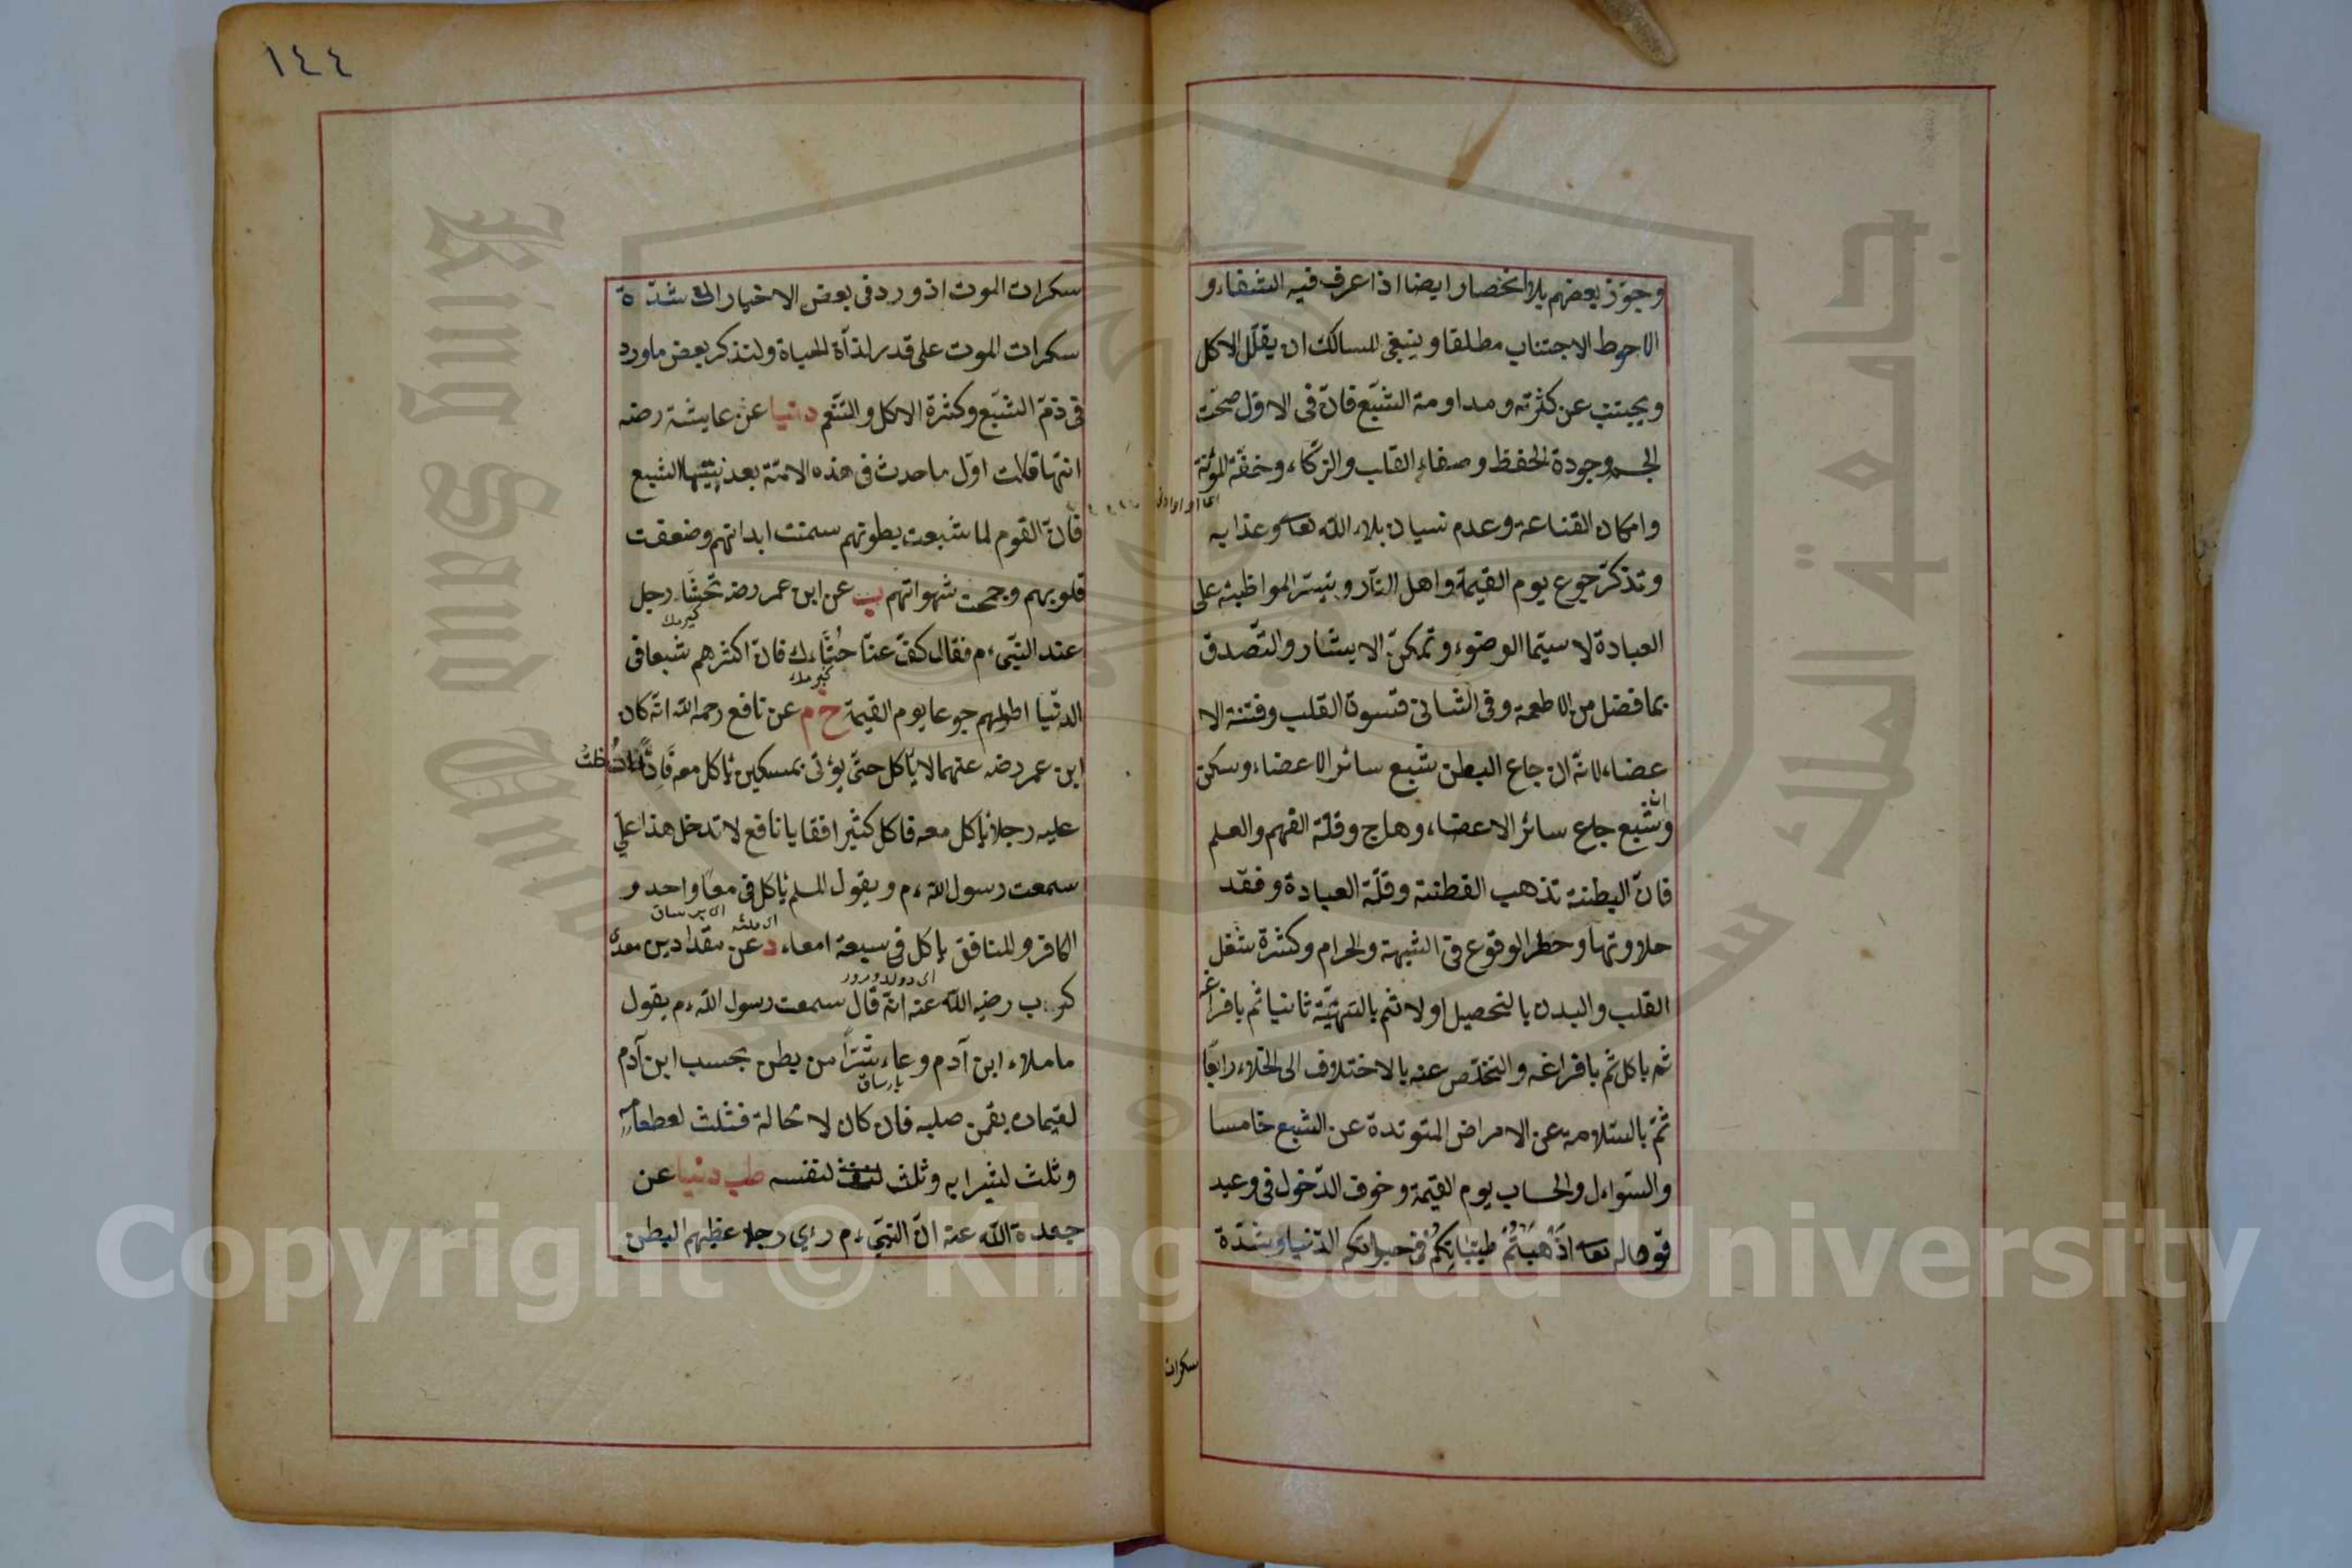 وجوّز بعضهم بلا انحصار ايضا اذا عرف فيه الشفاء و
الاحوط الاجتناب مطلقا وينبغى للسالك ان يقلّل الاكل
ويجتنب عن كثرته ومداومة الشّبع فانّ فى الاوّل صحّت
الجسم وجودة الحفظ وصفاء القلب والزكاء وخفّة المؤنة
وامكان القناعة وعدم نسيان بلاء الله تعا وعذابه
وتذكّر جوع يوم القيمة واهل النّار وتيسّر المواظبة على
العبادة لا سيّما الوضوء وتمكنّ الايثار والتّصدق
بما فضل من الاطعمة وفى الثانى قسوة القلب وفتنة الا
عضاء لانّه ان جاع البطن شبع سائر الاعضاء وسكن
وان شبع جاع سائر الاعضاء وهاج وقلّة الفهم والعلم
فانّ البطنة تذهب الفطنة وقلّة العبادة وفقد
حلاوتها وخطر الوقوع فى الشبهة والحرام وكثرة شغل
القلب والبدن بالتحصيل اولا ثم بالتهيّئة ثانيا ثم بافراغه
ثم باكل ثم بافراغه والتخلّص عنه بالاختلاف الى الخلاء رابعًا
ثمّ بالسّلامة عن الامراض المتولدة عن الشبع خامسا
والسّواءل والحساب يوم القيمة وخوف الدّخول فى وعيد
قوله تعا اَذْهَبْتُمْ طَيِّبَاتِكُمْ فى حيواتكم الدّنيا وشدّة
سكرات
١٤٤
سكرات الموت اذ ورد فى بعض الاخبار انّ شدّة
سكرات الموت على قدر لذّاة الحياة ولنذكر بعض ما ورد
فى ذمّ الشّبع وكثرة الاكل والتّنعّم دنيا عن عايشة رضه
انّها قالت اوّل ما حدث فى هذه الامّة بعد نبيّها الشبع
فانّ القوم لما شبعت بطونهم سمنت ابدانهم وضعفت
قلوبهم وجمحت شهواتهم ب عن ابن عمر رضه تَجَشَّا رجل
كيرمك
عند النّبىّ م فقال كفّ عنّا جُشَاءَك فان اكثرهم شبعا فى
كيرمك
الدنيا اطولهم جوعا يوم القيمة خ م عن نافع رحمه الله انّه كان
ابن عمر رضه عنهما لا يأكل حتّى يؤتى بمسكين يأكل معه فادخلت
عليه رجلا يأكل معه فاكل كثيرا فقا يا نافع لا تدخل هذا علىّ
سمعت رسول الله م ويقول المسلم يأكل فى معًا واحد و
الكافر والمنافق يأكل فى سبعة امعاء د عن مقداد بن معدى
كرب رضيه الله عنه انّه قال سمعت رسول الله م يقول
ما ملاء ابن آدم وعاء شرّا من بطن بحسب ابن آدم
لقيمات يقمن صلبه فان كان لا محالة فثلث لطعامه
وثلث لشرابه وثلث لنفسه طب دنيا عن
جعدة الله عنه انّ النّبىّ م رءى رجلا عظيم البطن